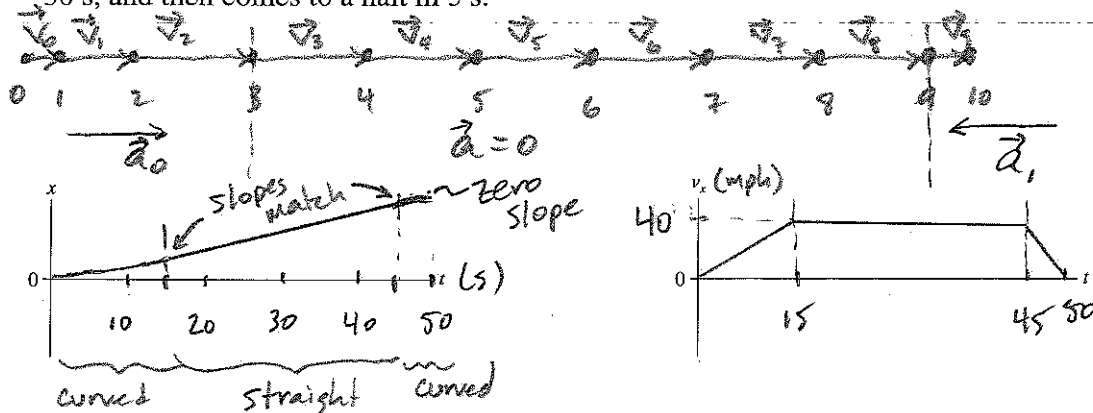 30 s, and then comes to a halt in 5 s.
v0 v1 v2 v3 v4 v5 v6 v7 v8 v9
0 1 2 3 4 5 6 7 8 9 10
a0 a = 0 a1
x slopes match zero slope
0 t (s)
10 20 30 40 50
curved straight curved
vx (mph)
40
0 t
15 45 50